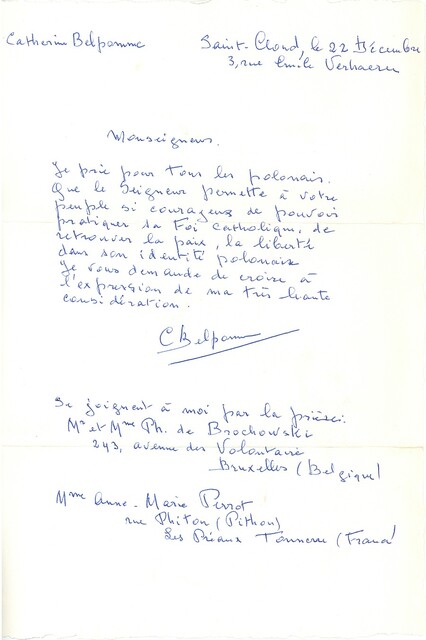 Catherine Belpomme
Saint-Cloud, le 22 Décembre
3, rue Emile Verhaeren
Monseigneur.
Je prie pour tous les polonais.
Que le Seigneur permette à votre
peuple si courageux de pouvoir
pratiquer sa Foi Catholique, de
retrouver la paix, la liberté
dans son identité polonaise
Je vous demande de croire à
l'expression de ma très haute
considération.
C Belpomme
Se joignent à moi par la prière:
Mr et Mme Ph. de Brochowski
243, avenue des Volontaires
Bruxelles (Belgique)
Mme Anne-Marie Perrot
rue Phiton (Pithon)
Les Préaux Tonnerre (France)